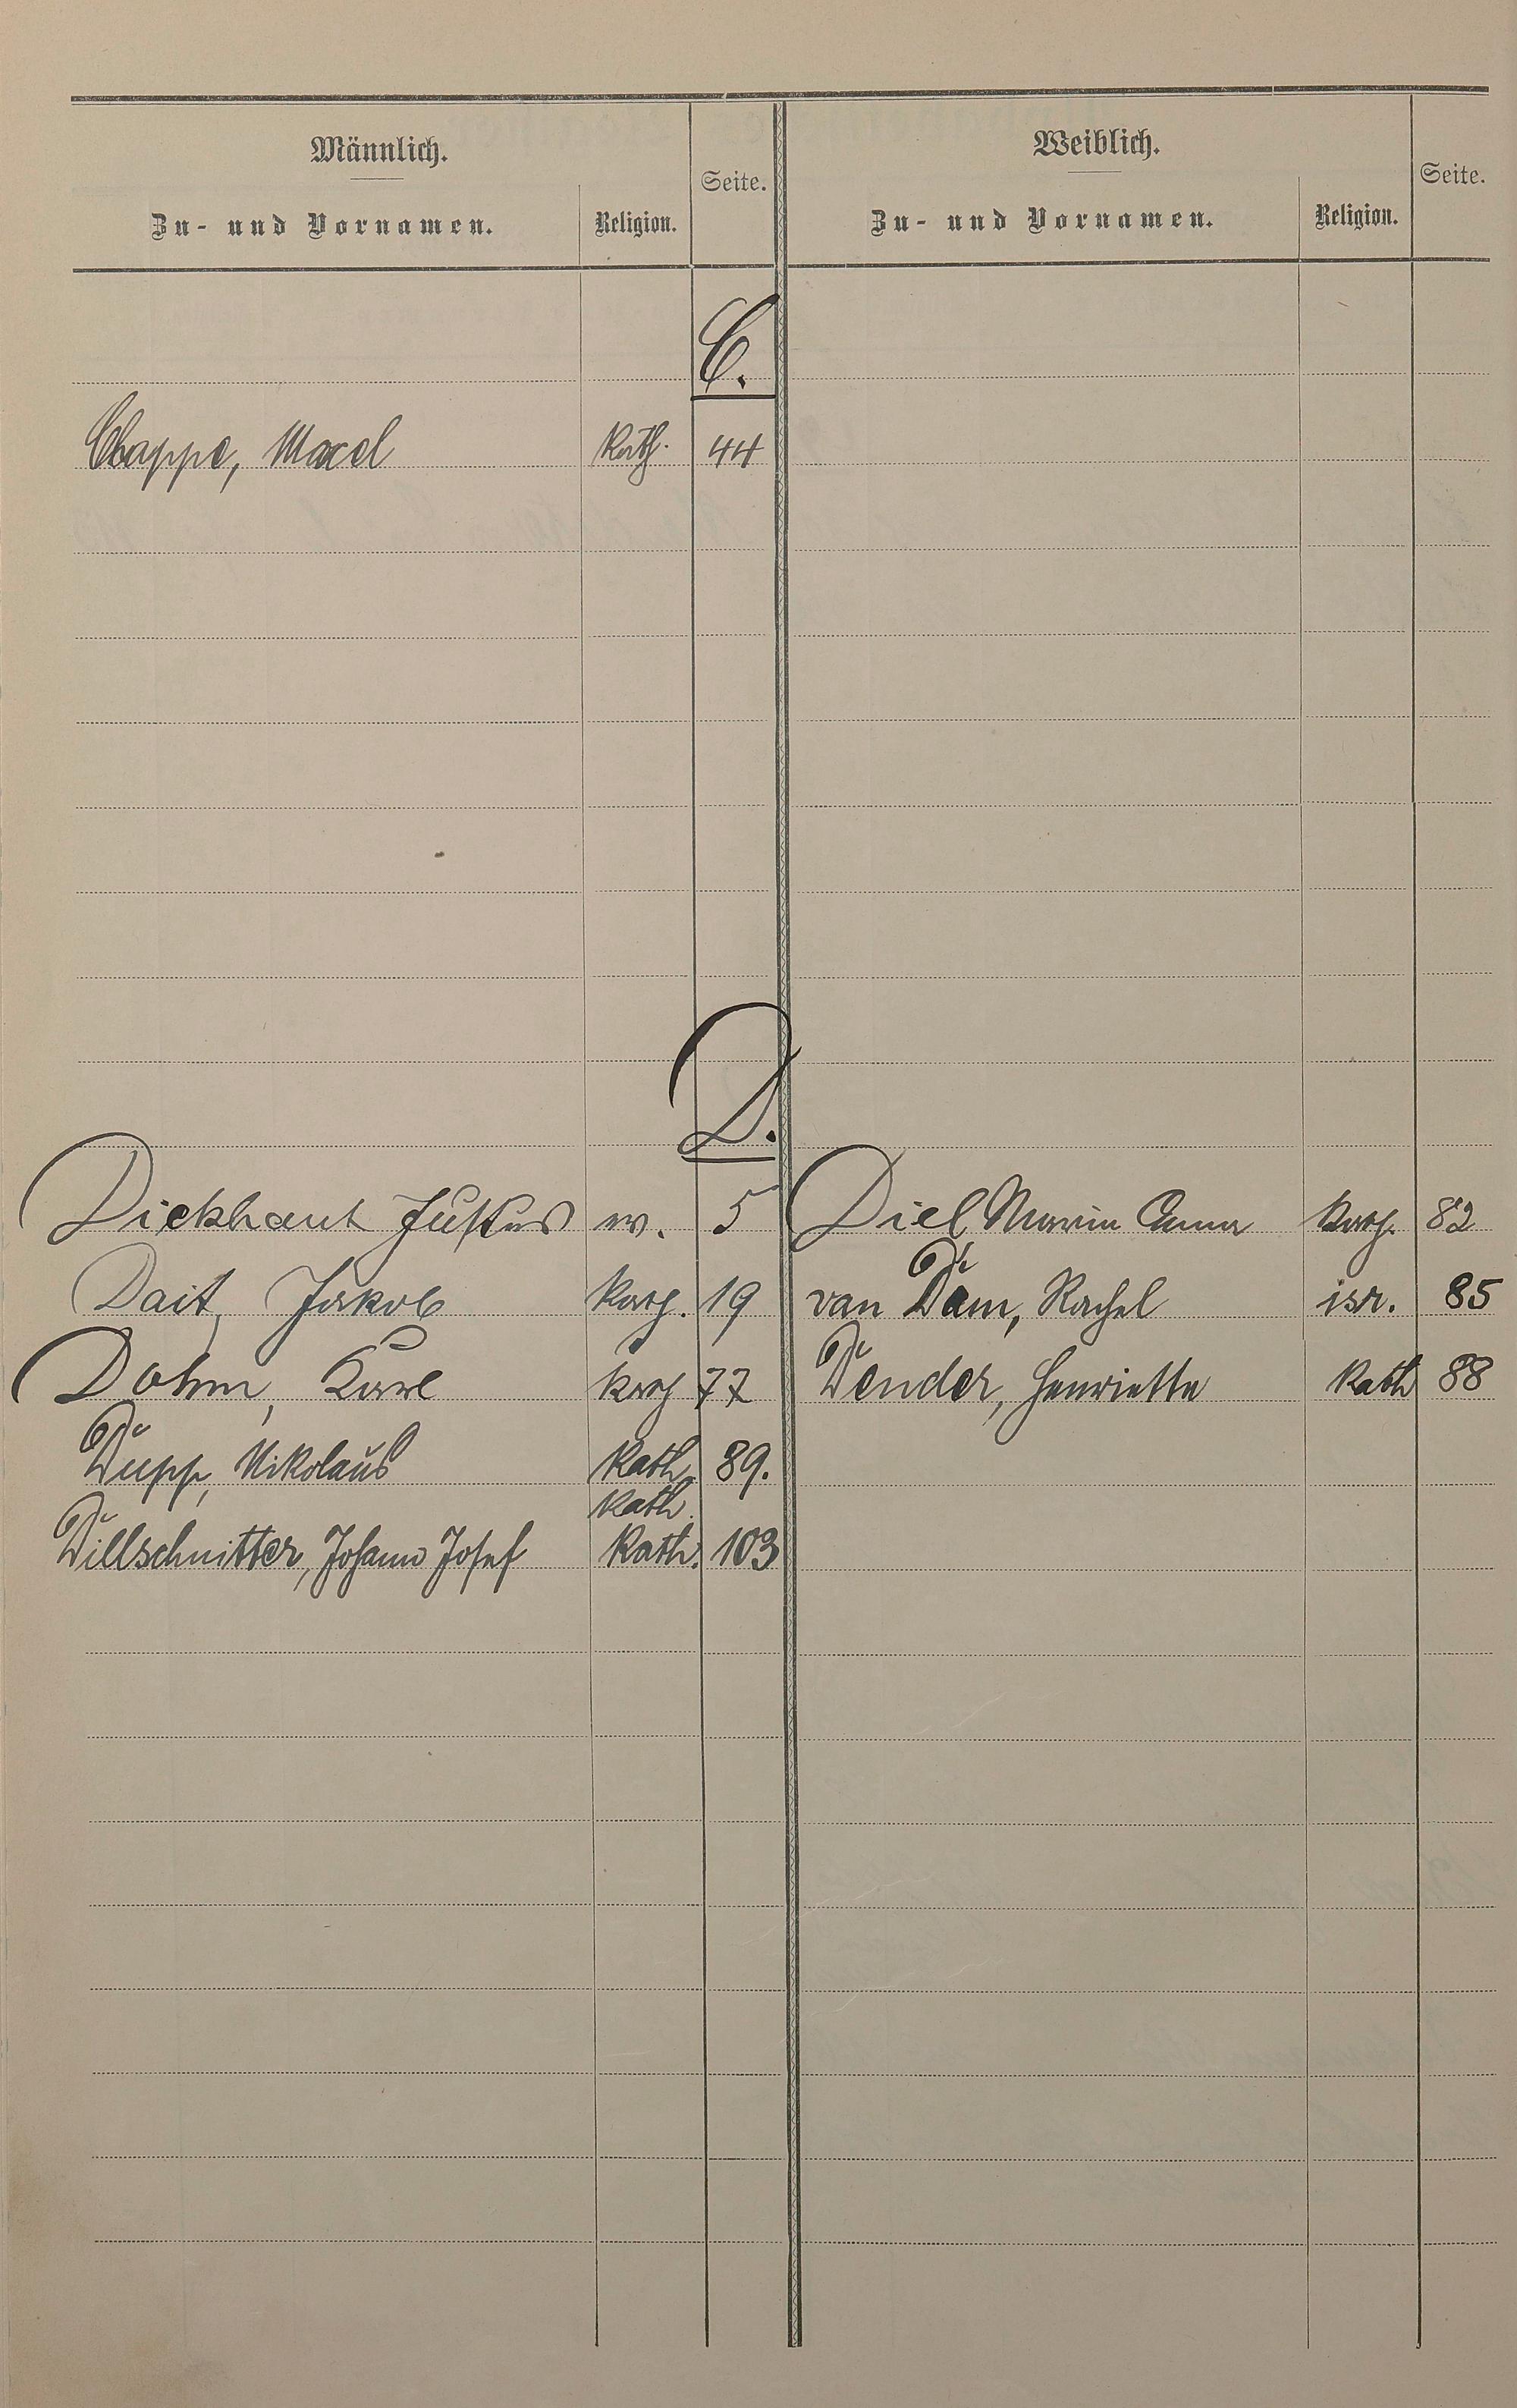 Männlich. Seite. Weiblich. Seite.
Zu- und Vornamen. Religion. Zu- und Vornamen. Religion.
C.
Chappe, Maxel Kath. 44
D.
Dickhaut Justus ev. 5 Diel, Maria Anna Kath. 82
Dait, Jakob Kath. 19 van Dam, Rachel isr. 85
Dohm, Karl Kath 77 Dender, Henriette Kath 88
Dupp, Nikolaus Kath. 89.
Kath.
Dillschnitter, Johann Josef Kath. 103